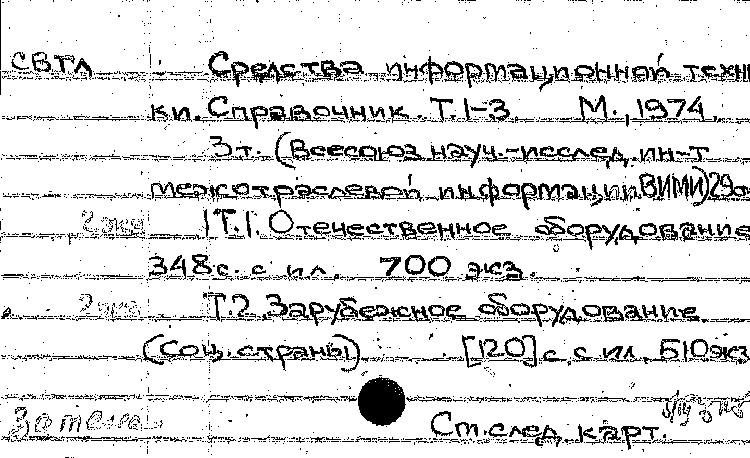 СВТЛ Средства информационной техни
ки. Справочник. Т.1-3 М., 1974.
3 т. (Всесоюз. науч.-исслед. ин-т
межотраслевой информации. ВИМИ) 29
2 экз Т.1. Отечественное оборудование
348с. с ил. 700 экз.
2 экз Т.2. Зарубежное оборудование.
(Соц. страны). [120] с. с ил. 510экз
См. след. карт.